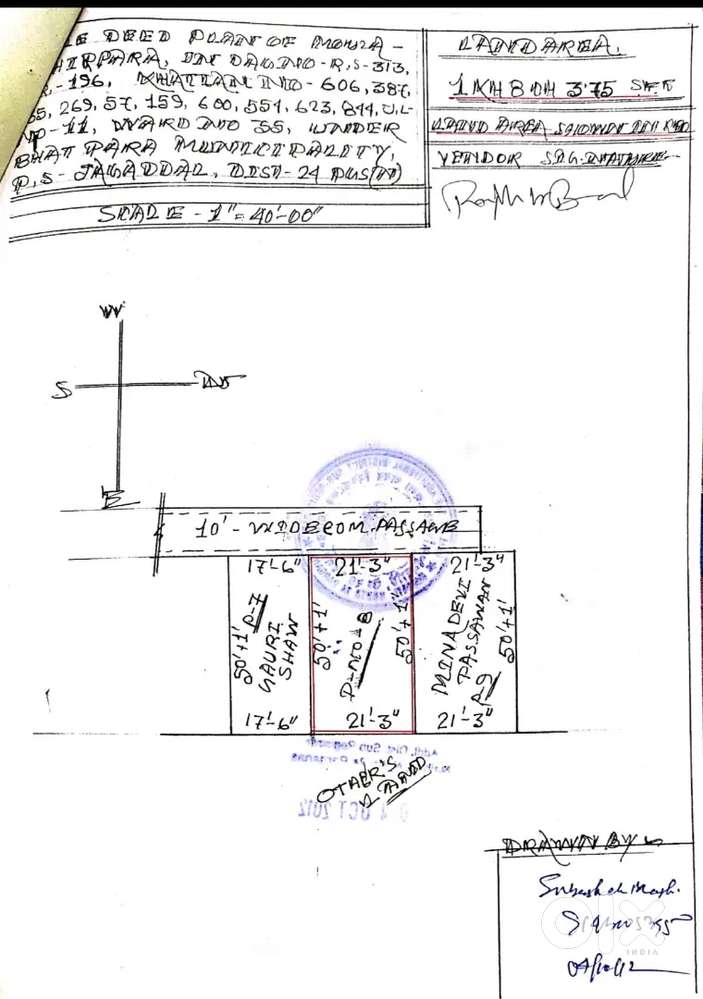 LE DEED PLAN OF MOUZA -
HIRPARA, IN DAG NO - R.S - 313,
R. - 196, KHATIAN NO - 606, 387,
55, 269, 57, 159, 600, 551, 623, 844, J.L -
NO - 11, WARD NO 35, UNDER
BHATPARA MUNICIPALITY,
P.S - JAGADDAL, DIST - 24 PGS (N)
SCALE - 1" = 40'-00"
LAND AREA.
1 KH 8 CH 3.75 SFT
LAND AREA SHOWN IN RED
VENDOR SIGNATURE
W
S
N
E
10' - WIDE COM. PASSAGE
17'-6"
21'-3"
21'-3"
50'+1'
P-7
GAURI
SHAW
50'+1'
P-NO-8
50'+1'
MINA DEVI
PASSAWAN
P-9
50'+1'
17'-6"
21'-3"
21'-3"
OTHER'S
LAND
OCT 2012
DRAWN BY
olx
INDIA